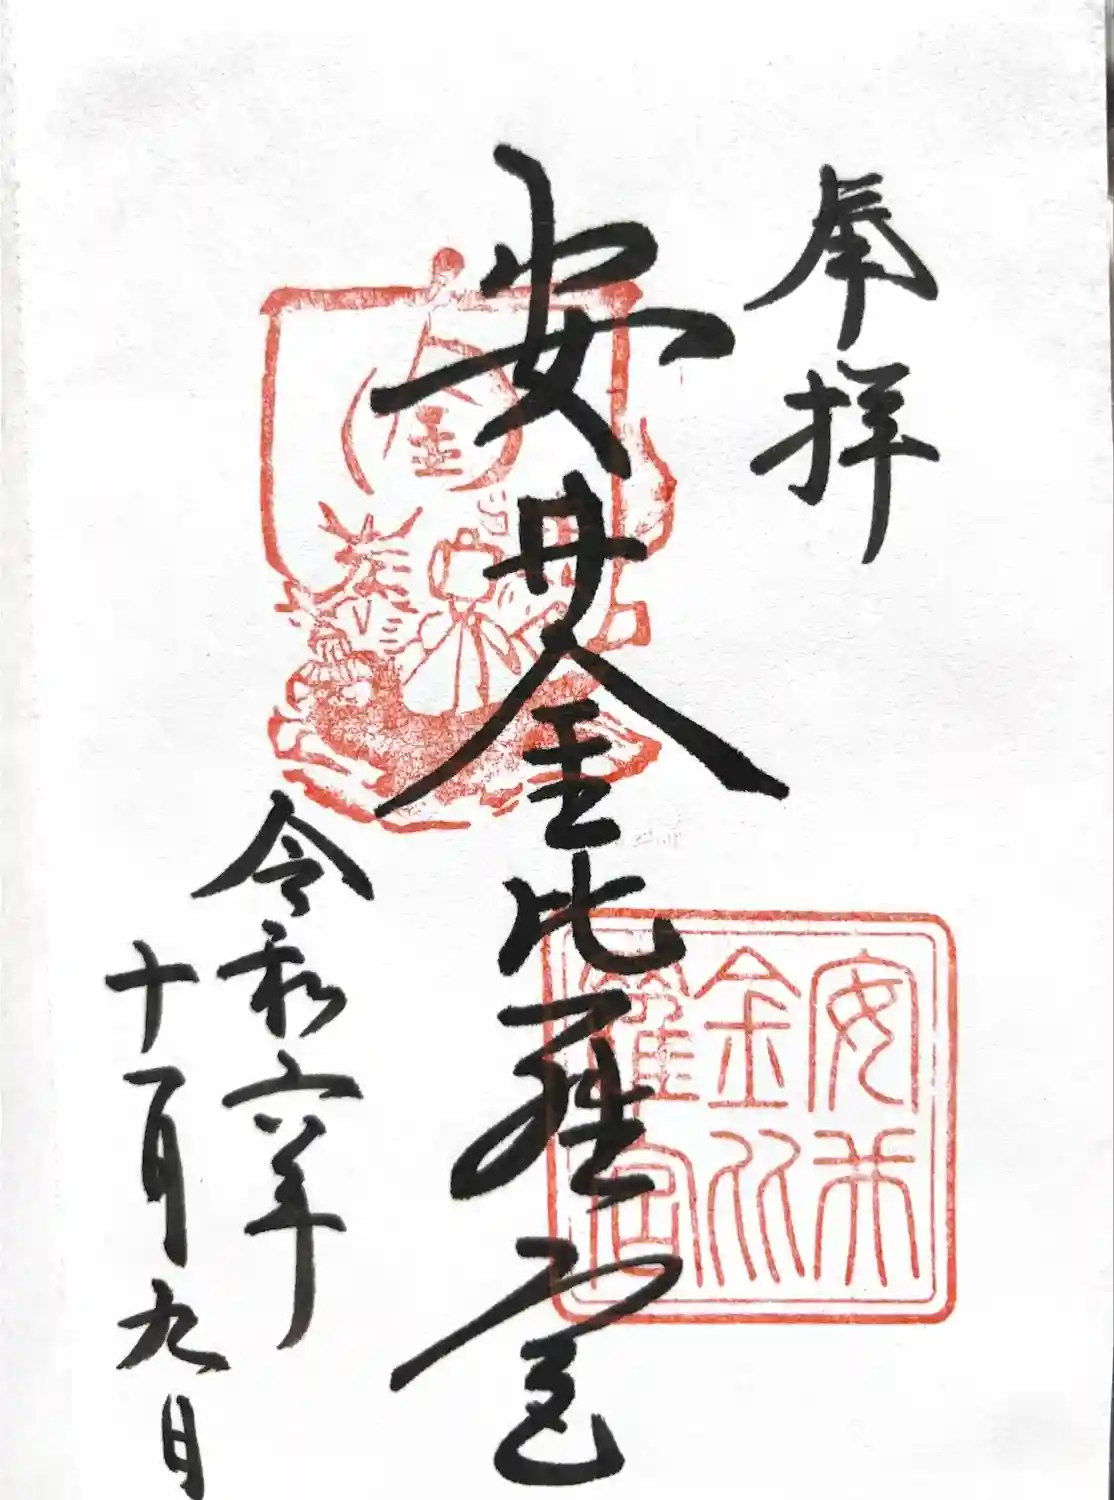 奉拝
安井金比羅宮
令和六年
十月九日
金
安井
金比
羅宮